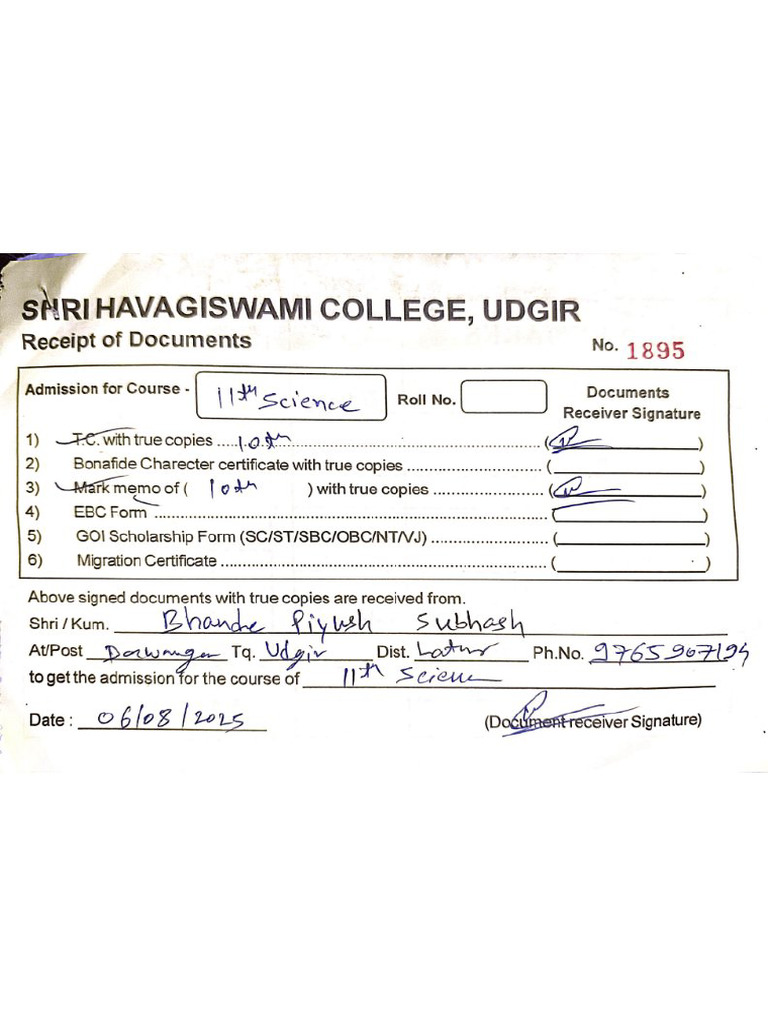 SHRI HAVAGISWAMI COLLEGE, UDGIR
Receipt of Documents No. 1895
Admission for Course - 11th Science Roll No. Documents Receiver Signature
1) T.C. with true copies ..... 10th ..... ( )
2) Bonafide Charecter certificate with true copies ..... ( )
3) Mark memo of ( 10th ) with true copies ..... ( )
4) EBC Form ..... ( )
5) GOI Scholarship Form (SC/ST/SBC/OBC/NT/VJ) ..... ( )
6) Migration Certificate ..... ( )
Above signed documents with true copies are received from.
Shri / Kum. Bhande Piyush Subhash
At/Post Tq. Udgir Dist. Latur Ph.No. 9765907194
to get the admission for the course of 11th Science
Date : 06/08/2025 (Document receiver Signature)